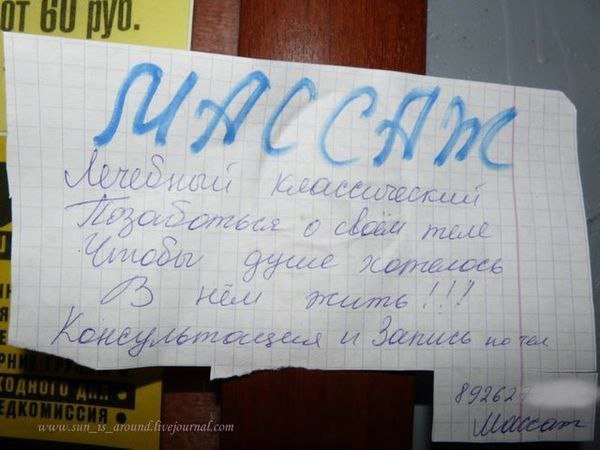 от 60 руб.
МАССАЖ
Лечебный классический
Позаботься о своём теле
Чтобы душе хотелось
В нём жить!!!
Консультация и Запись по тел
892627
Массаж
ХОДНОГО ДНЯ
ЕДКОМИССИЯ
www.sun_is_around.livejournal.com